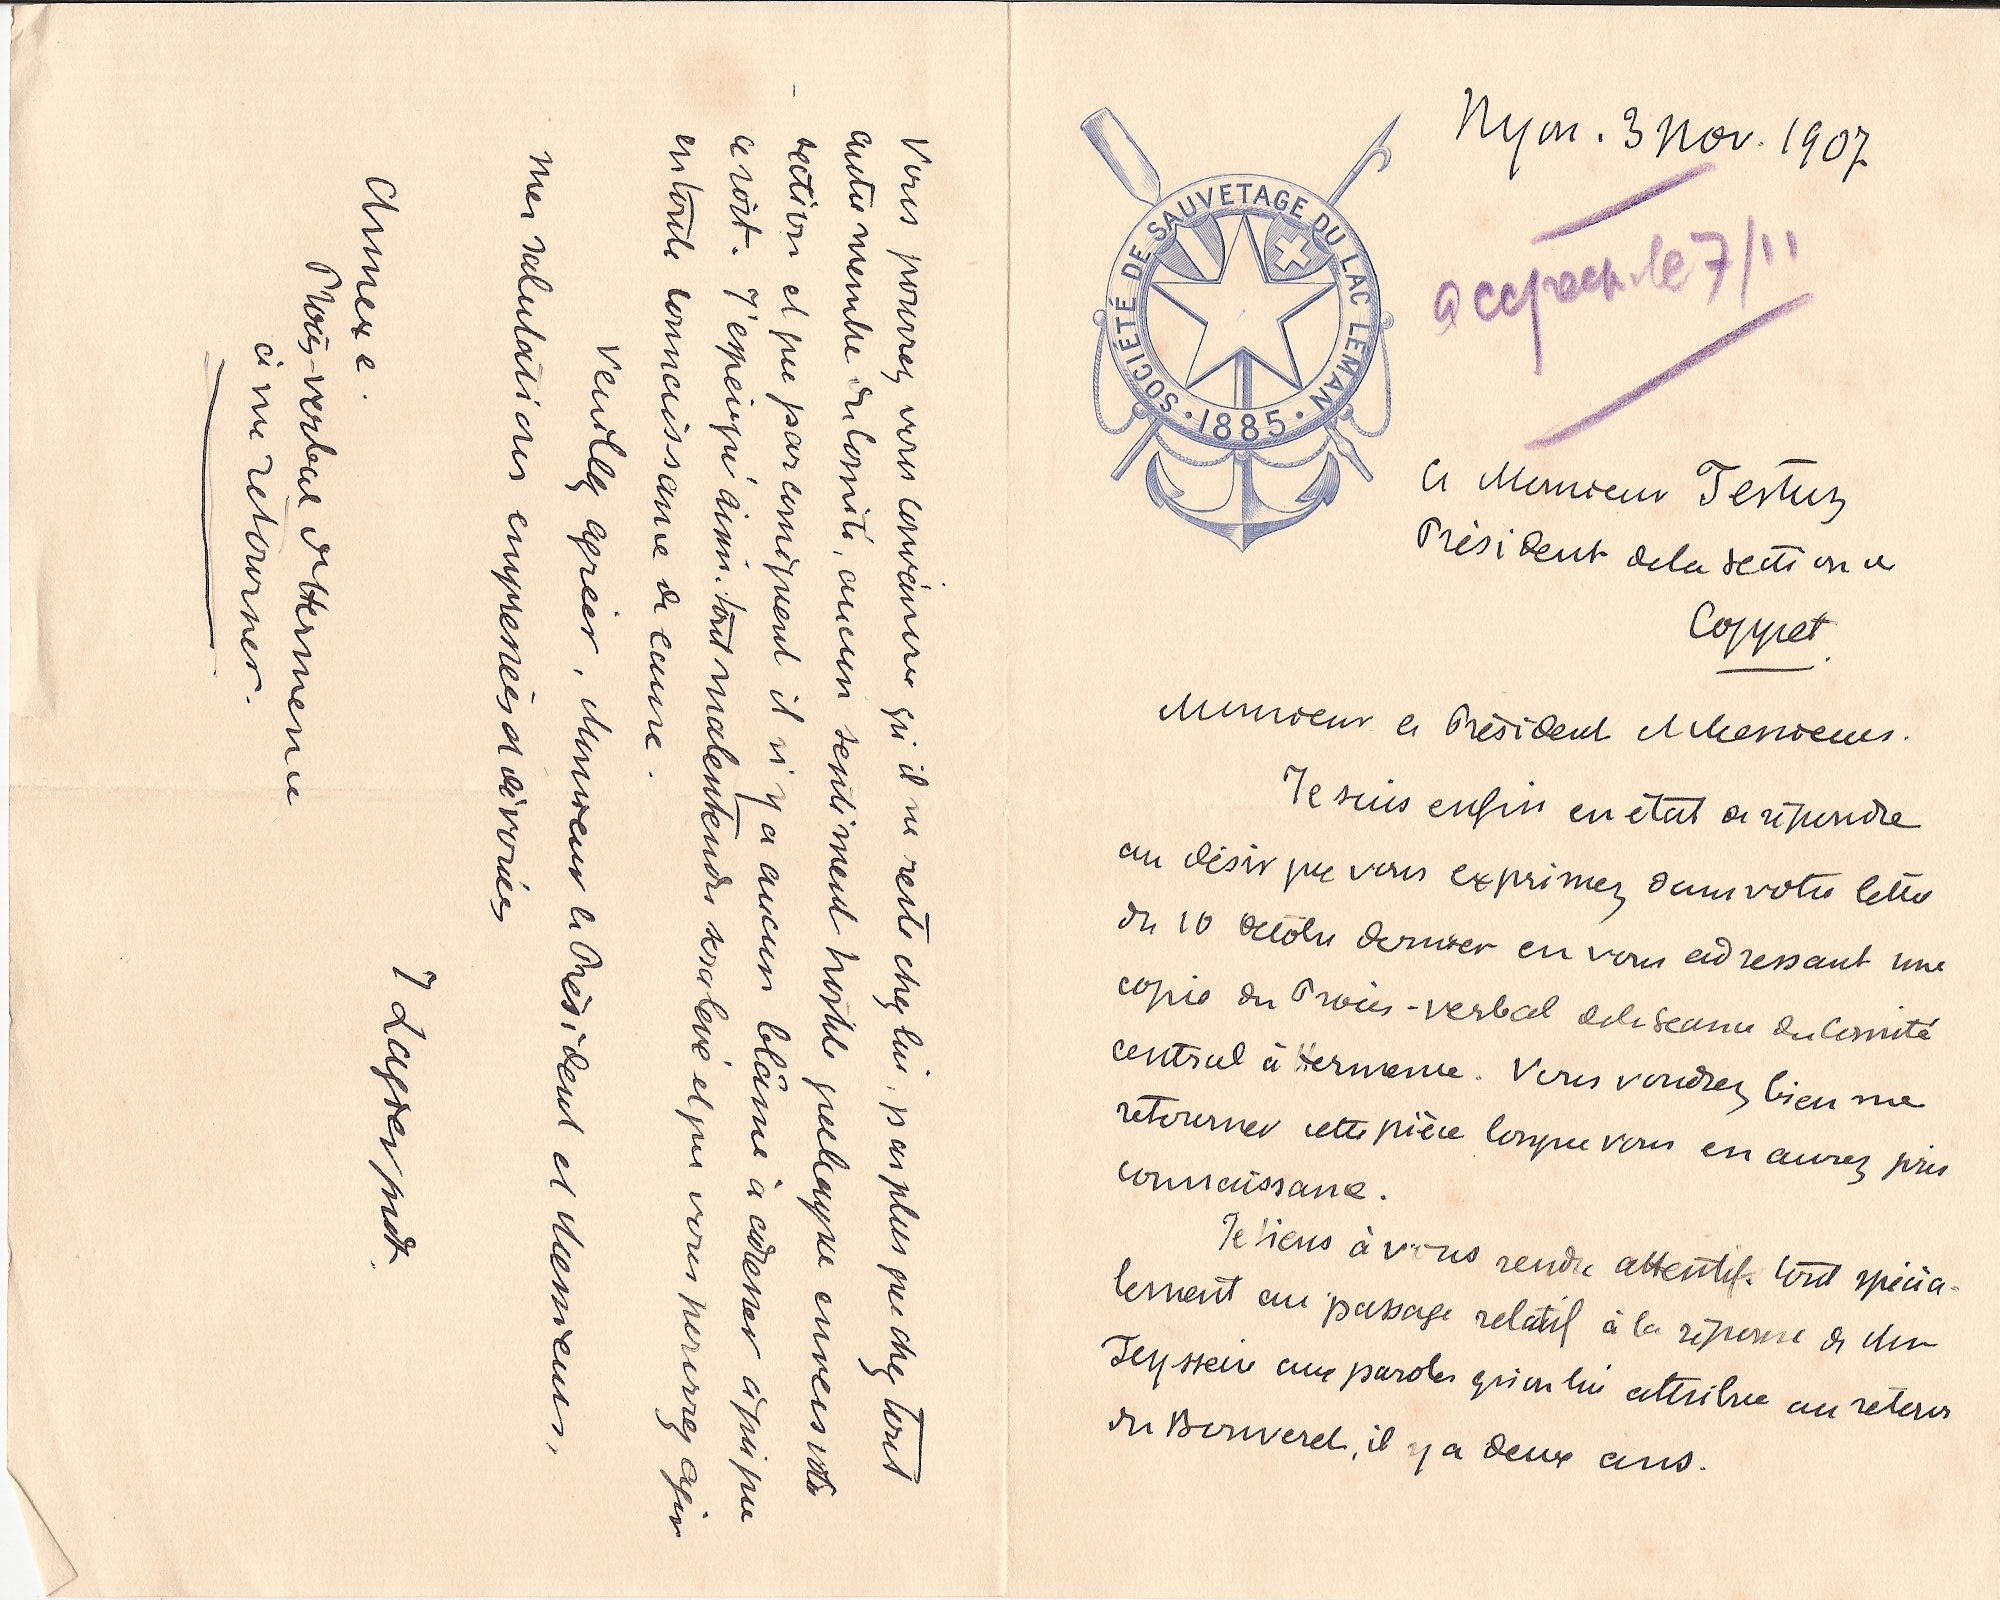 Nyon. 3 Nov. 1907
SOCIÉTÉ DE SAUVETAGE DU LAC LÉMAN
· 1885 ·
le 7/11
A Monsieur Testuz
Président de la section de
Coppet.
Monsieur le Président et Messieurs.
Je suis enfin en état de répondre
au désir que vous exprimez dans votre lettre
du 10 Octobre dernier en vous adressant une
copie du Procès-verbal de la séance du Comité
central à Hermence. Vous voudrez bien me
retourner cette pièce lorsque vous en aurez pris
connaissance.
Je tiens à vous rendre attentifs tout spécia-
lement au passage relatif à la réponse de Mr
Teysseire aux paroles qu'on lui attribue au retour
du Bouveret, il y a deux ans.
Vous pourrez vous convaincre qu'il ne reste chez lui, pas plus que chez tout
autre membre du Comité, aucun sentiment hostile quelconque envers votre
section et que par conséquent il n'y a aucun blâme à adresser à qui que
ce soit. J'espère qu'ainsi tout malentendu sera levé et que vous pourrez agir
en toute connaissance de cause.
Veuillez agréer, Monsieur le Président et Messieurs,
mes salutations empressées et dévouées
J Lagier pdt.
Annexe.
Procès-verbal d'Hermence
à me retourner.